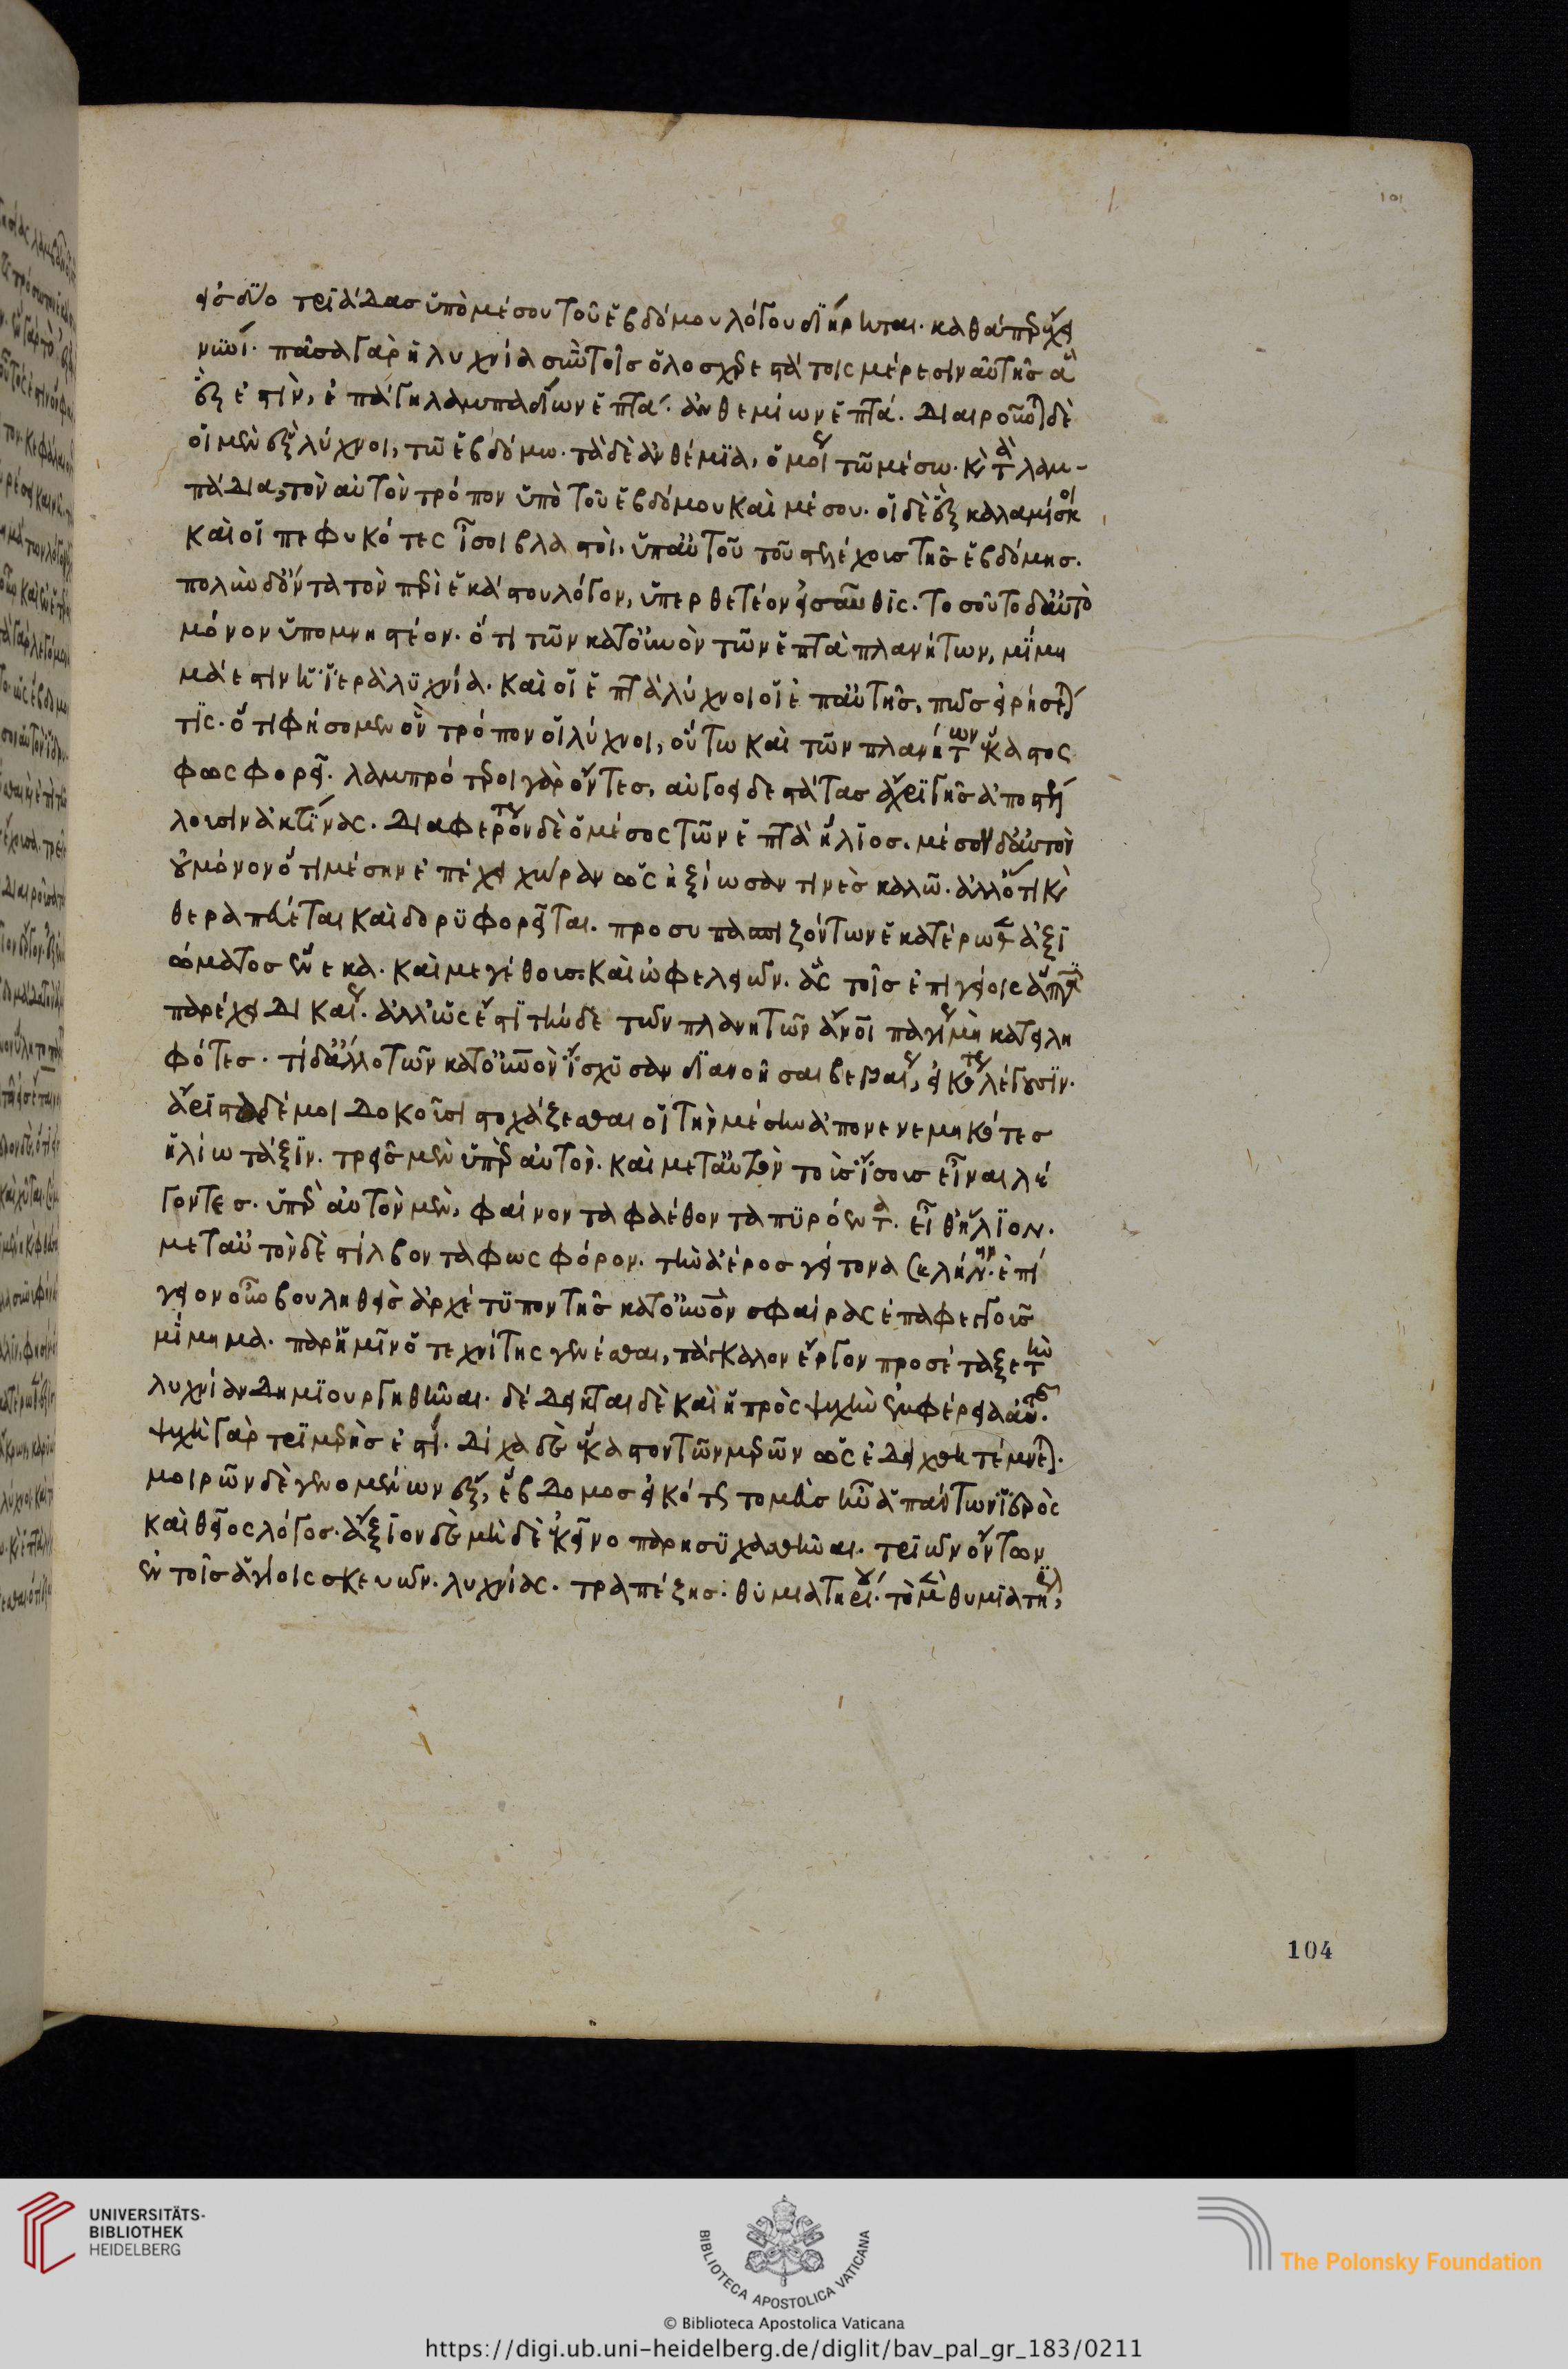 εἰς δύο τριάδας ὑπὸ μέσου τοῦ ἑβδόμου λόγου διήρηται. καθάπερ ἔχει
νυνί. πᾶσα γὰρ ἡ λυχνία σὺν τοῖς ὁλοσχερεστάτοις μέρεσιν αὐτῆς ἃ
ἓξ ἐστὶν, ἐπάγη λαμπαδίων ἑπτά. ἀνθεμίων ἑπτά. διαιροῦνται δὲ
οἱ μὲν ἓξ λύχνοι, τῶ ἑβδόμω. τὰ δὲ ἀνθέμια, ὁμοίως τῶ μέσω. καὶ τὰ λαμ-
πάδια, τὸν αὐτὸν τρόπον ὑπὸ τοῦ ἑβδόμου καὶ μέσου. οἱ δὲ ἓξ καλαμίσκοι
καὶ οἱ πεφυκότες ἴσοι βλαστοὶ. ὑπ' αὐτοῦ τοῦ στελέχους τῆς ἑβδόμης.
πολὺν δ' ὄντα τὸν περὶ ἑκάστου λόγον, ὑπερθετέον εἰσαῦθις. τοσοῦτο δ' αὐτὸ
μόνον ὑπομνηστέον. ὅτι τῶν κατ' οὐρανὸν τῶν ἑπτὰ πλανήτων, μίμη
μά ἐστιν ἡ ἱερὰ λυχνία. καὶ οἱ ἑπτὰ λύχνοι οἱ ἐπ' αὐτῆς. πῶς εἰρήσεται
τίς. ὅτι φήσομεν ὃν τρόπον οἱ λύχνοι, οὕτω καὶ τῶν πλανήτων ἕκαστος
φωσφορεῖ. λαμπρότεροι γὰρ ὄντες, αὐγοειδεστάτας ἄχρι γῆς ἀποστέλ
λουσιν ἀκτῖνας. διαφερόντως δὲ ὁ μέσος τῶν ἑπτὰ ἥλιος. μέσον δ' αὐτὸν
οὐ μόνον ὅτι μέσην ἐπέχει χώραν ὡς ἠξίωσαν τινὲς καλῶ. ἀλλ' ὅτι καὶ
θεραπεύεται καὶ δορυφορεῖται. πρὸς συπασπιζόντων ἑκατέρωθεν ἀξι
ώματος ἕνεκα. καὶ μεγέθους. καὶ ὠφελειῶν. ἃς τοῖς ἐπιγείοις ἅπασι
παρέχει δικαίως. ἄλλως ἐστὶ τὴν δὲ τῶν πλανητῶν ἄνοι παγίως μὴ κατειλη
φότες. τί δ' ἄλλο τῶν κατ' οὐρανὸν ἴσχυσαν διανοῆσαι βεβαίως, εἰκότως λέγουσιν.
ἄριστα δέ μοι δοκοῦσι στοχάζεσθαι οἱ τὴν μέσην ἀπονενεμηκότες
ἡλίω τάξιν. τρεῖς μὲν ὑπὲρ αὐτὸν. καὶ μετ' αὐτὸν τοὺς ἴσους εἶναι λέ
γοντες. ὑπὲρ αὐτὸν μὲν, φαίνοντα φαέθοντα πυρόεντα. εἶθ' ἥλιον.
μετ' αὐτὸν δὲ στίλβοντα φωσφόρον. τὴν ἀέρος γείτονα σελήνην. ἐπί
γειον οὖν βουληθεὶς ἀρχέτυπον τῆς κατ' οὐρανὸν σφαίρας ἑπταφεγγοῦς
μίμημα. παρ' ἡμῖν ὁ τεχνίτης γενέσθαι, πάγκαλον ἔργον προσέταξε τὴν
λυχνίαν δημιουργηθῆναι. δέδεικται δὲ καὶ ἡ πρὸς ψυχὴν ἐμφέρεια αὐτῆς.
ψυχὴ γὰρ τριμερὴς ἐστί. δίχα δὲ ἕκαστον τῶν μερῶν ὡς ἐδείχθη τέμνεται.
μοιρῶν δὲ γενομένων ἓξ, ἕβδομος εἰκότως τομεὺς ἦν ἁπάντων ὁ ἱερὸς
καὶ θεῖος λόγος. ἄξιον δὲ μὴ δὲ ἐκεῖνο παρησυχασθῆναι. τριῶν ὄντων
ἐν τοῖς ἁγίοις σκευῶν. λυχνίας. τραπέζης. θυμιατηρίου. τὸ μὲν θυμιατήριον,
104
101
UNIVERSITÄTS-
BIBLIOTHEK
HEIDELBERG
BIBLIOTECA APOSTOLICA VATICANA
The Polonsky Foundation
© Biblioteca Apostolica Vaticana
https://digi.ub.uni-heidelberg.de/diglit/bav_pal_gr_183/0211